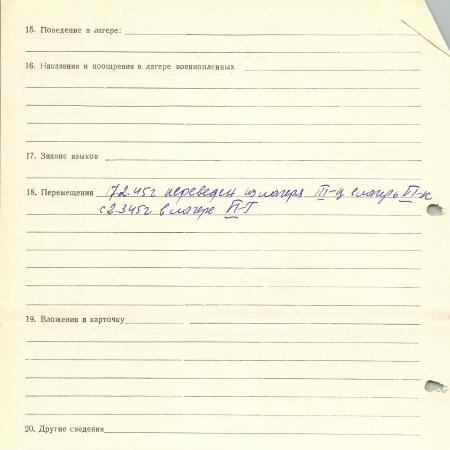 15. Поведение в лагере:
16. Наказания и поощрения в лагере военнопленных
17. Знание языков
18. Перемещения 17.2.45г переведен из лагеря III-ц в лагерь VI-к
с 2.3.45г в лагере VI-Г
19. Вложения в карточку
20. Другие сведения